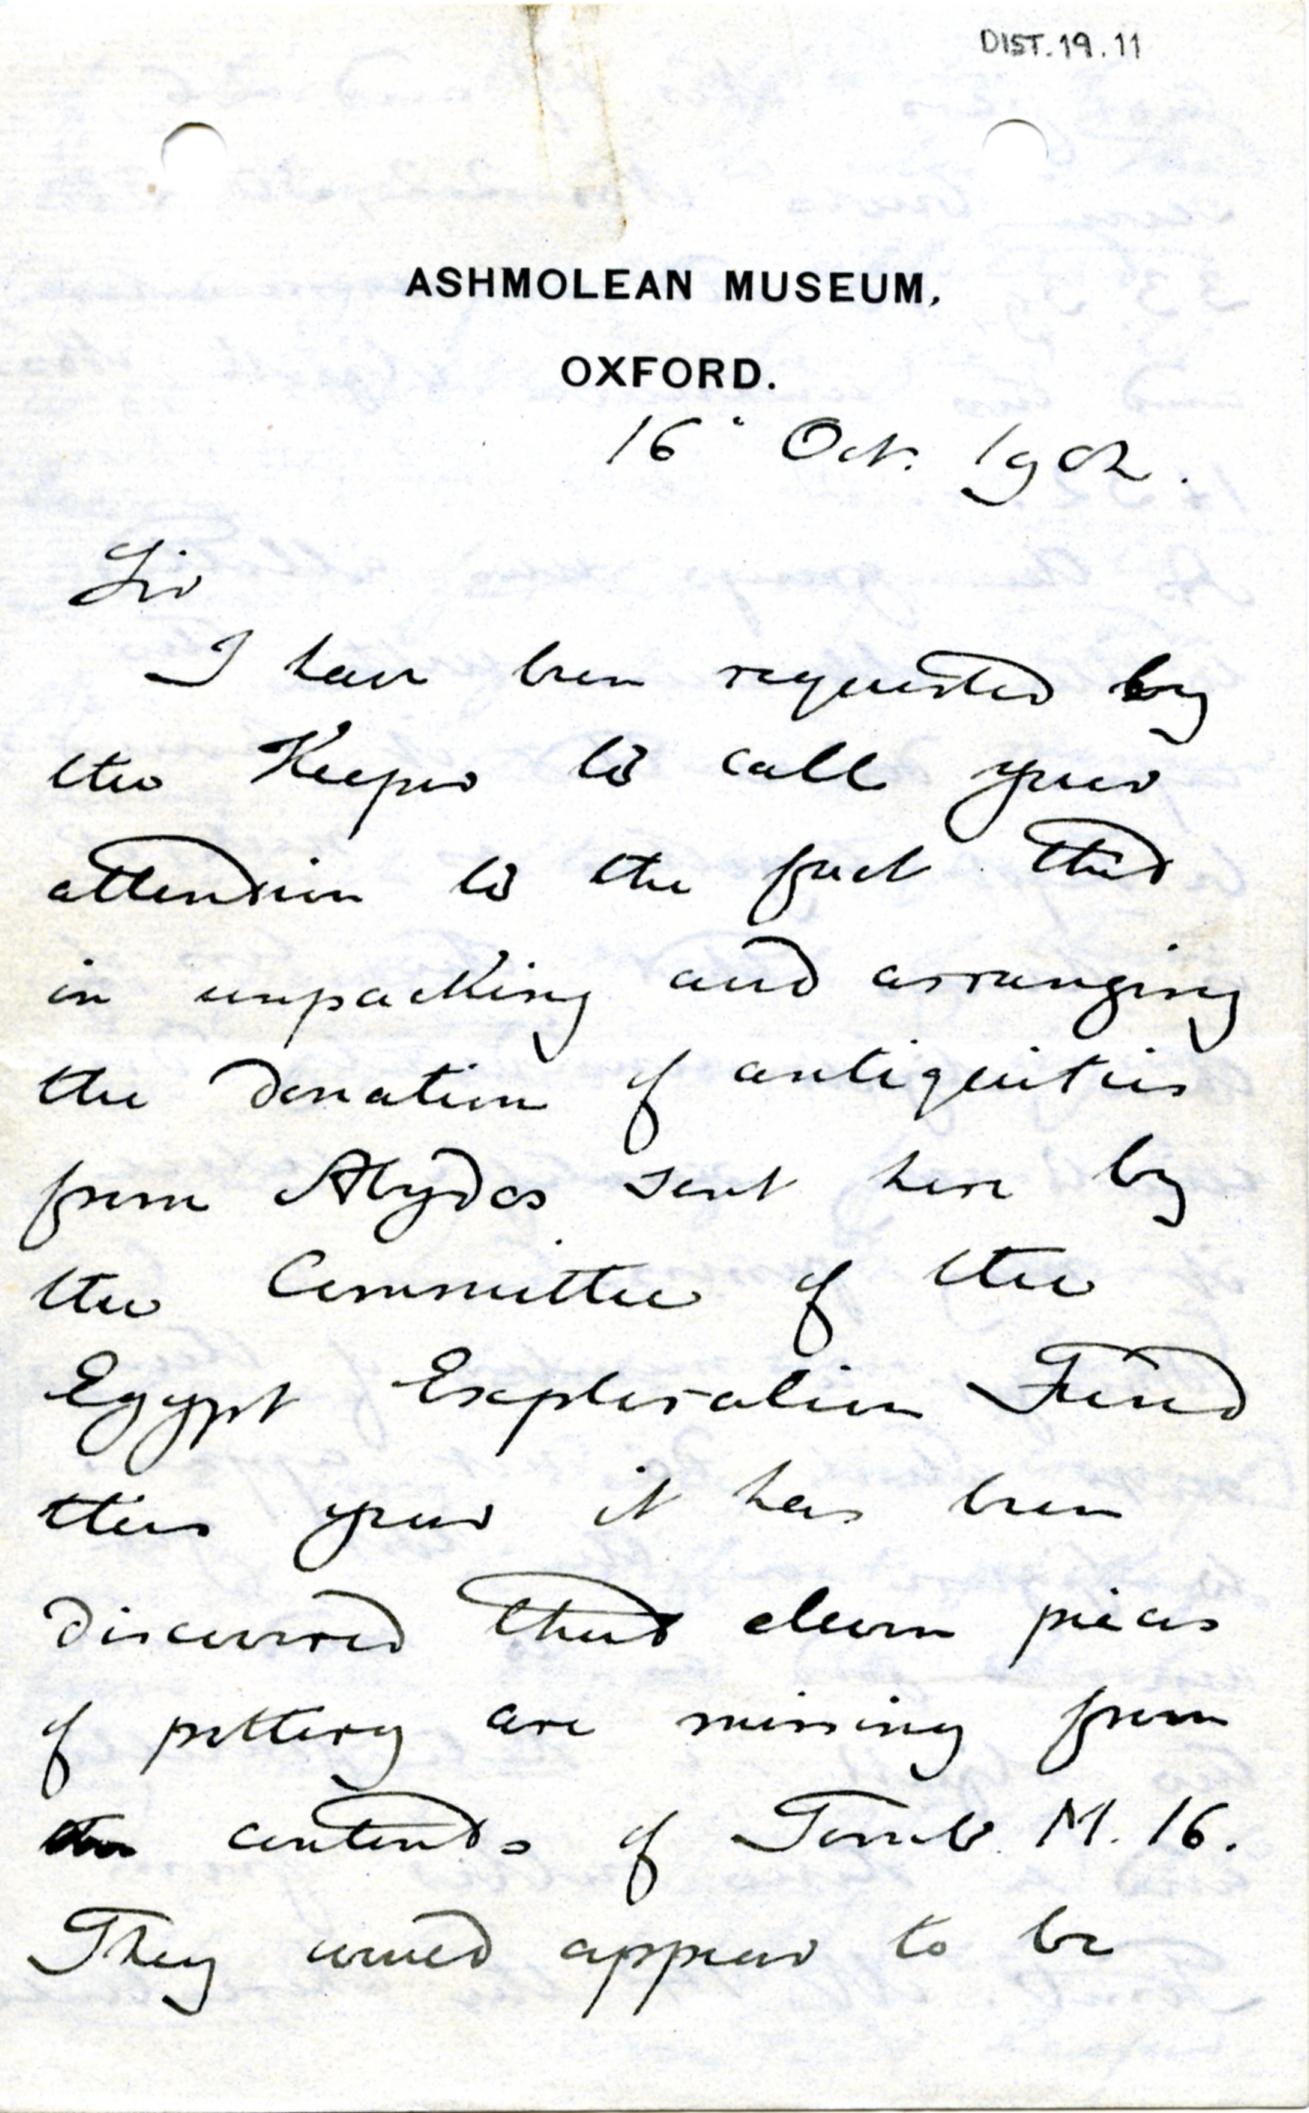 DIST.19.11
ASHMOLEAN MUSEUM,
OXFORD.
16° Oct. 1902.
Sir
I have been requested by
the Keeper to call your
attention to the fact that
in unpacking and arranging
the donation of antiquities
from Abydos sent here by
the Committee of the
Egypt Exploration Fund
this year it has been
discovered that eleven pieces
of pottery are missing from
the contents of Tomb M. 16.
They would appear to be